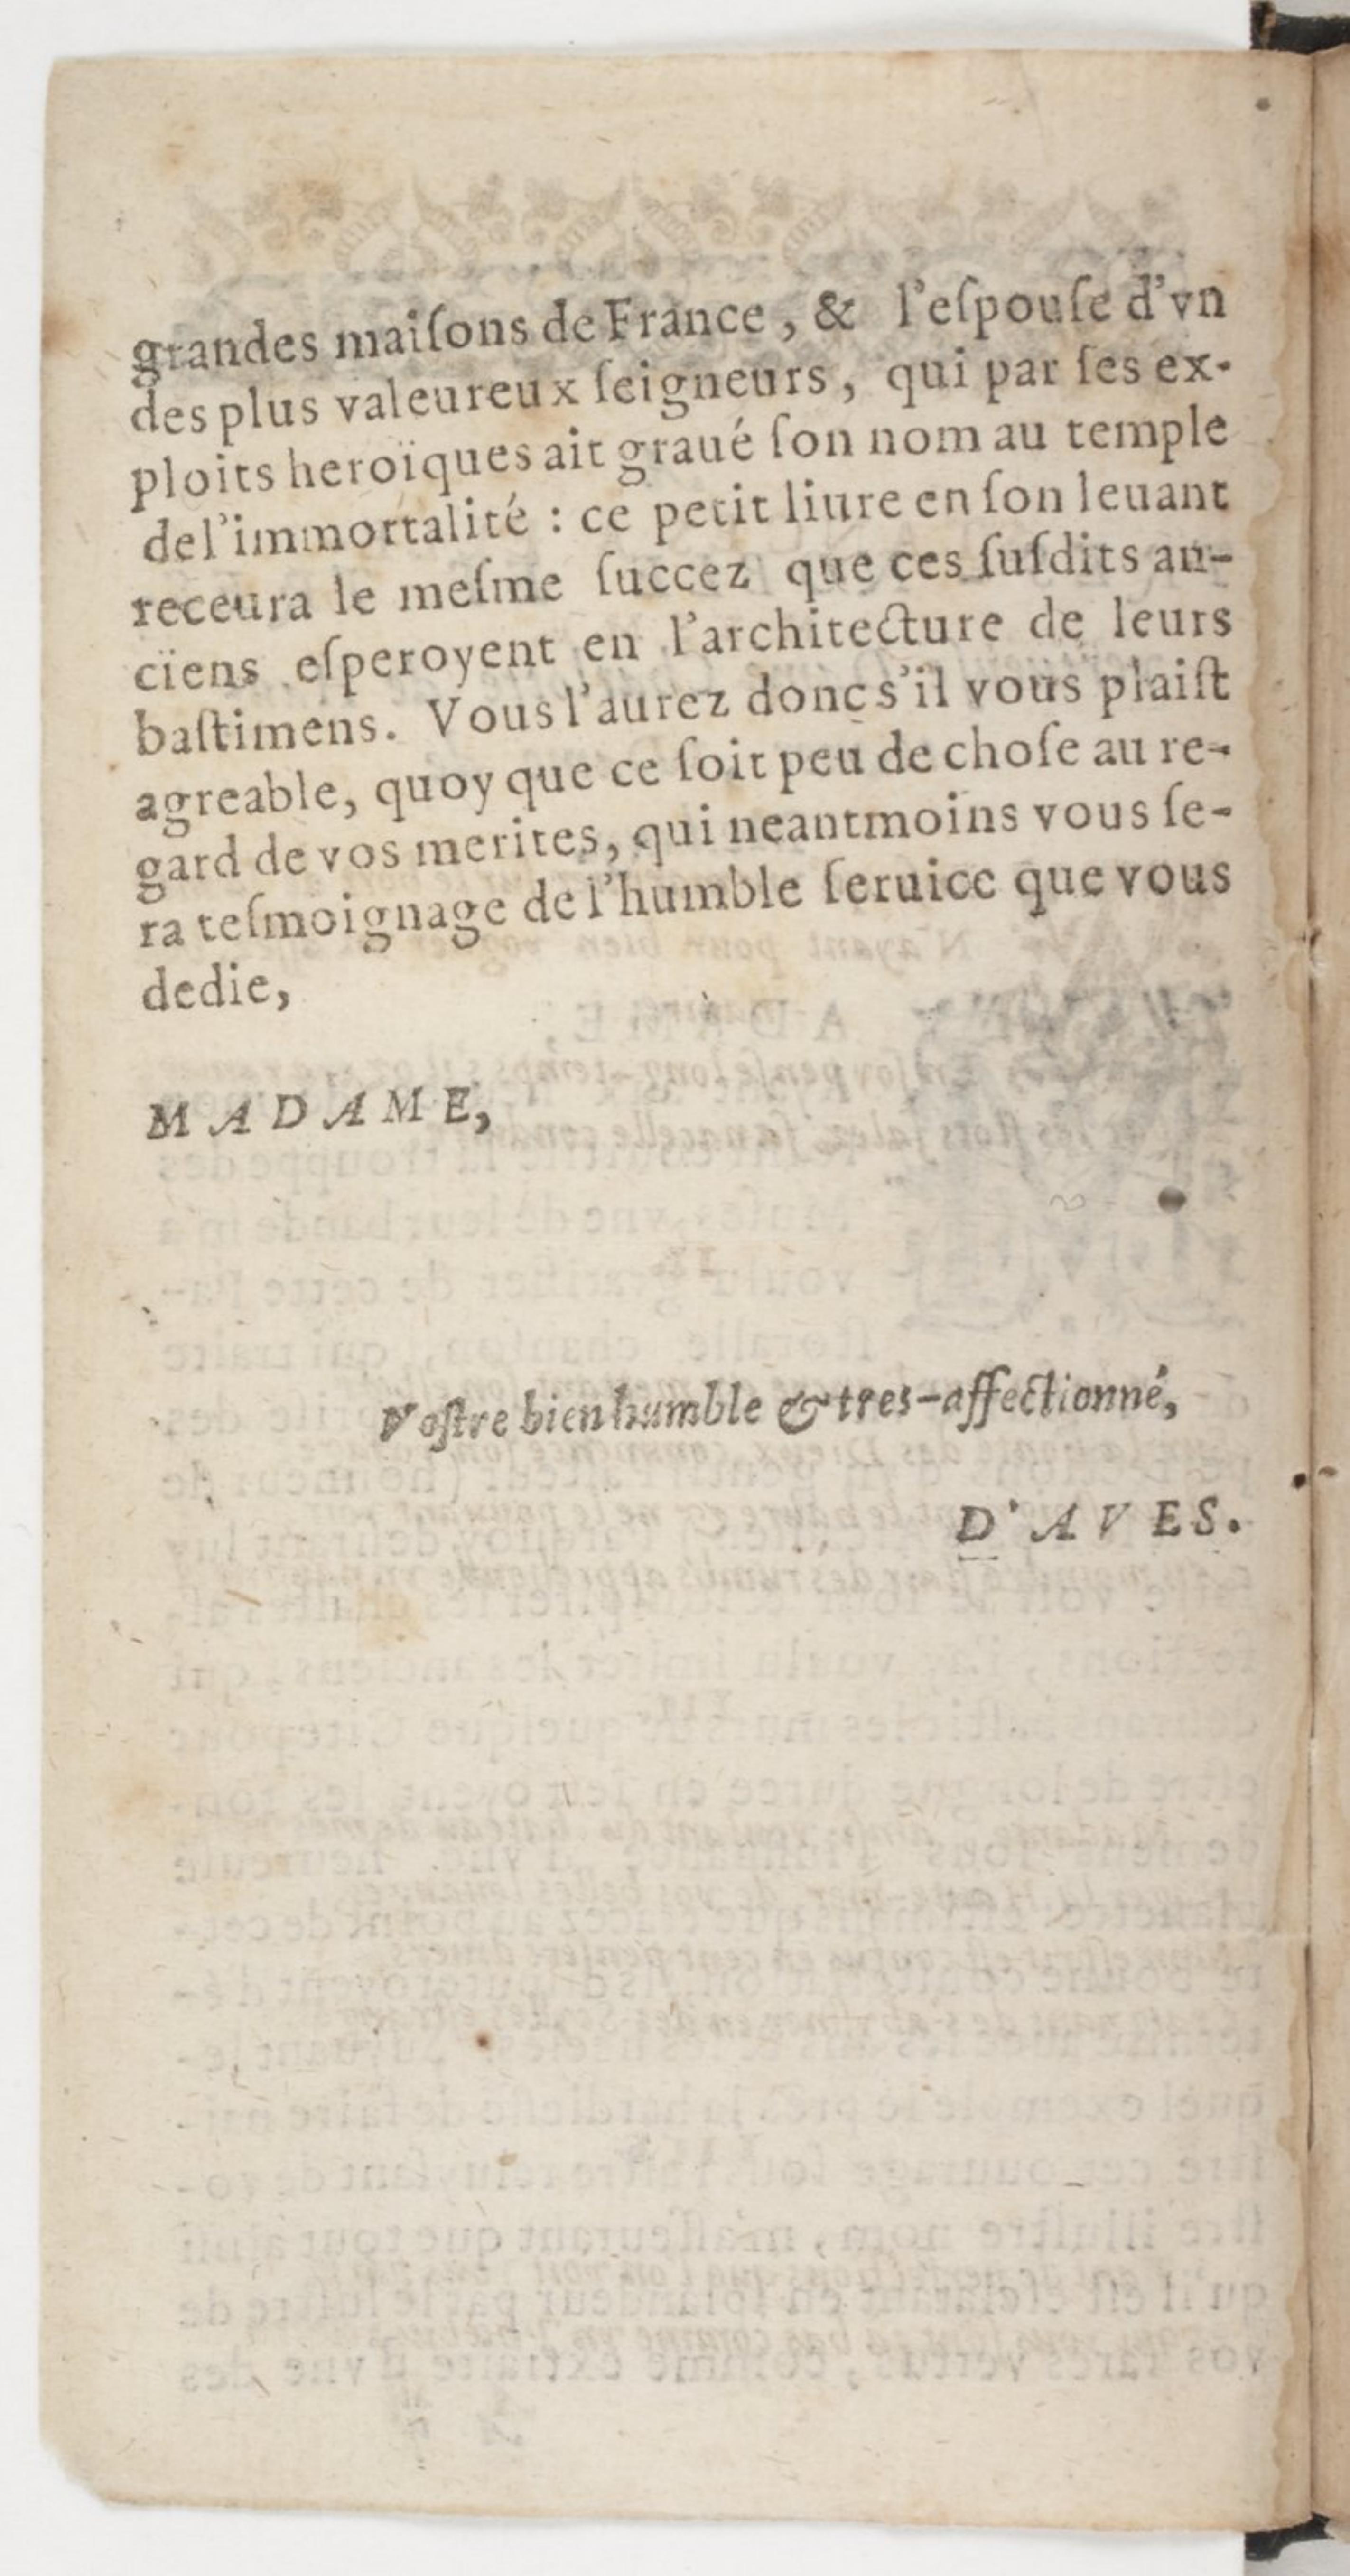 grandes maiſons de France, & l'eſpouſe d'vn
des plus valeureux ſeigneurs, qui par ſes ex-
ploits heroïques ait graué ſon nom au temple
de l'immortalité : ce petit liure en ſon leuant
receura le meſme ſuccez que ces ſuſdits an-
cïens eſperoyent en l'architecture de leurs
baſtimens. Vous l'aurez donc s'il vous plaiſt
agreable, quoy que ce ſoit peu de choſe au re-
gard de vos merites, qui neantmoins vous ſe-
ra teſmoignage de l'humble ſeruice que vous
dedie,
MADAME,
Voſtre bien humble & tres-affectionné,
D'AVES.